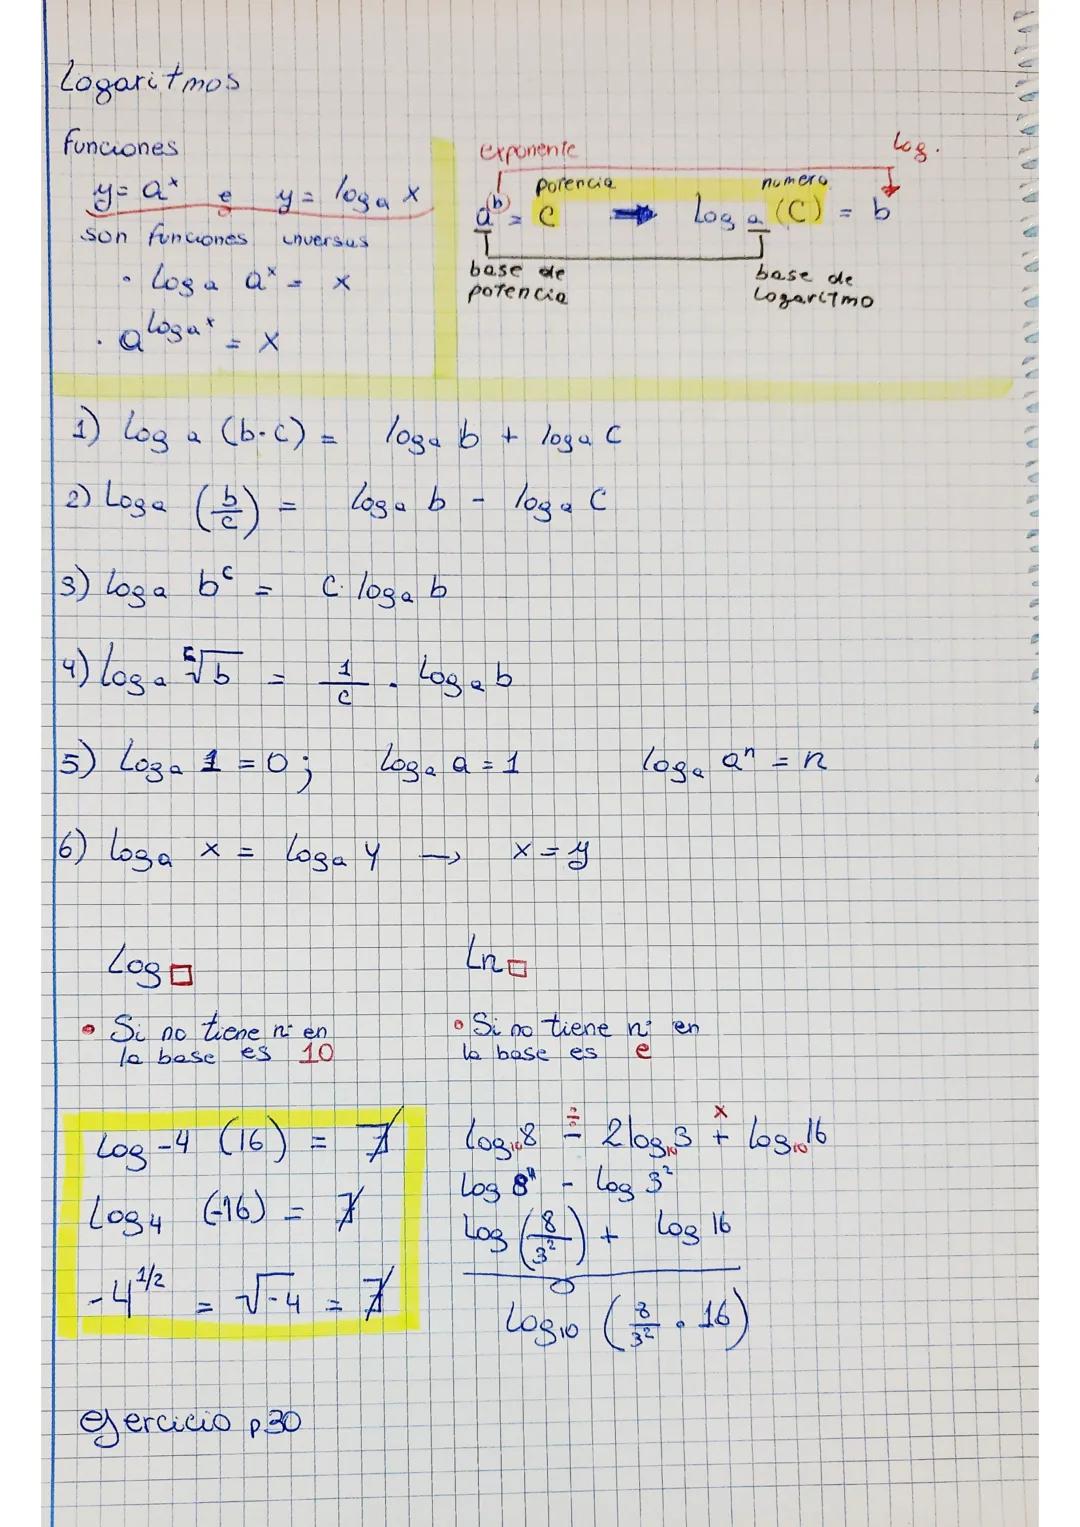 Logaritmos
funciones
y = aˣ e y = logₐ x
son funciones inversas
· Logₐ aˣ = x
· a^logₐˣ = x
exponente
Log.
potencia
numero
a^b = C ➡ Logₐ (C) = b
base de potencia
base de Logaritmo
1) Logₐ (b·c) = logₐ b + logₐ C
2) Logₐ (b/c) = logₐ b - logₐ C
3) logₐ b^c = C · logₐ b
4) logₐ ᶜ√b = 1/c · Logₐ b
5) Logₐ 1 = 0; Logₐ a = 1 logₐ aⁿ = n
6) logₐ x = Logₐ y → x = y
Log □
• Si no tiene nº en
la base es 10
Ln □
• Si no tiene nº en
la base es e
Log -4 (16) = ∄
Log₄ (-16) = ∄
-4^1/2 = √-4 = ∄
log₁₀8 ÷ - 2log₁₀3 + x log₁₀16
Log 8 - Log 3²
Log (8/3²) + Log 16
Log₁₀ (8/3² · 16)
ejercicio p30